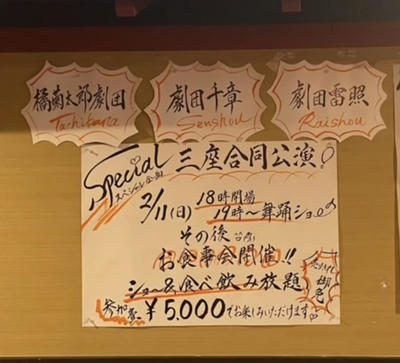 橘菊太郎劇団
Tachibana
劇団千章
Senshou
劇団雷照
Raishou
Special
スペシャル企画
三座合同公演!
2/11(日)
18時開場
19時〜舞踊ショー
その後
お食事会開催!!
ショー&食べ飲み放題
参加費 ¥5,000でお楽しみいただけます!